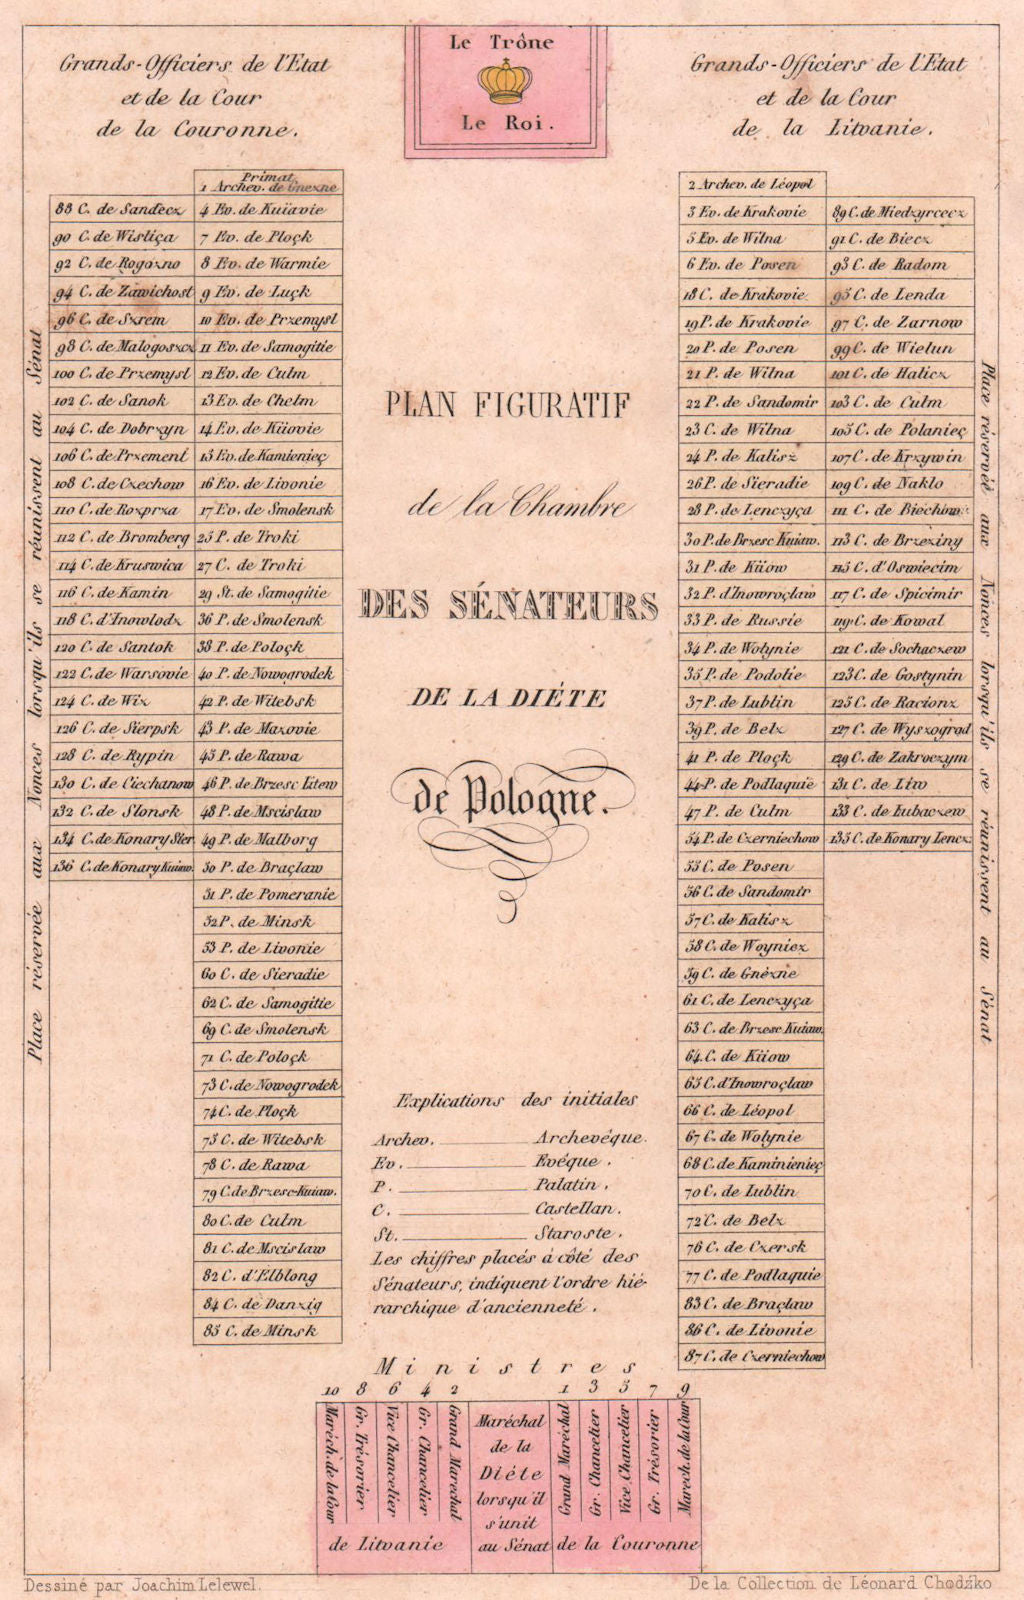 Le Trône
Le Roi.
Grands-Officiers de l'Etat
et de la Cour
de la Couronne.
Grands-Officiers de l'Etat
et de la Cour
de la Litvanie.
Place réservée aux Nonces lorsqu'ils se réunissent au Sénat
88 C. de Sandecz
90 C. de Wisliça
92 C. de Rogozno
94 C. de Zawichost
96 C. de Szrem
98 C. de Malogoszcz
100 C. de Przemysl
102 C. de Sanok
104 C. de Dobrzyn
106 C. de Przement
108 C. de Czechow
110 C. de Rozprza
112 C. de Bromberg
114 C. de Kruswica
116 C. de Kamin
118 C. d'Inowlodz
120 C. de Santok
122 C. de Warsovie
124 C. de Wiz
126 C. de Sierpsk
128 C. de Rypin
130 C. de Ciechanow
132 C. de Slonsk
134 C. de Konary Sier.
136 C. de Konary Kuiaw.
Primat,
1 Archev. de Gnezne
4 Ev. de Kuïavie
7 Ev. de Ploçk
8 Ev. de Warmie
9 Ev. de Luçk
10 Ev. de Przemysl
11 Ev. de Samogitie
12 Ev. de Culm
13 Ev. de Chelm
14 Ev. de Kiiovie
15 Ev. de Kamienieç
16 Ev. de Livonie
17 Ev. de Smolensk
25 P. de Troki
27 C. de Troki
29 St. de Samogitie
36 P. de Smolensk
38 P. de Poloçk
40 P. de Nowogrodek
42 P. de Witebsk
43 P. de Mazovie
45 P. de Rawa
46 P. de Brzesc Litew
48 P. de Mscislaw
49 P. de Malborg
50 P. de Braçlaw
51 P. de Pomeranie
52 P. de Minsk
53 P. de Livonie
60 C. de Sieradie
62 C. de Samogitie
69 C. de Smolensk
71 C. de Poloçk
73 C. de Nowogrodek
74 C. de Ploçk
75 C. de Witebsk
78 C. de Rawa
79 C. de Brzesc-Kuiaw.
80 C. de Culm
81 C. de Mscislaw
82 C. d'Elblong
84 C. de Danzig
85 C. de Minsk
PLAN FIGURATIF
de la Chambre
DES SÉNATEURS
DE LA DIÉTE
de Pologne.
Explications des initiales
Archev. Archevéque.
Ev. Evéque.
P. Palatin.
C. Castellan.
St. Staroste.
Les chiffres placés à côté des
Sénateurs, indiquent l'ordre hié-
rarchique d'ancienneté.
2 Archev. de Léopol
3 Ev. de Krakovie
5 Ev. de Wilna
6 Ev. de Posen
18 C. de Krakovie
19 P. de Krakovie
20 P. de Posen
21 P. de Wilna
22 P. de Sandomir
23 C. de Wilna
24 P. de Kalisz
26 P. de Sieradie
28 P. de Lenczyça
30 P. de Brzesc Kuiaw.
31 P. de Kiiow
32 P. d'Inowroçlaw
33 P. de Russie
34 P. de Wolynie
35 P. de Podolie
37 P. de Lublin
39 P. de Belz
41 P. de Ploçk
44 P. de Podlaquie
47 P. de Culm
54 P. de Czerniechow
55 C. de Posen
56 C. de Sandomir
57 C. de Kalisz
58 C. de Woyniez
59 C. de Gnézne
61 C. de Lenczyça
63 C. de Brzesc Kuiaw.
64 C. de Kiiow
65 C. d'Inowroçlaw
66 C. de Léopol
67 C. de Wolynie
68 C. de Kaminienieç
70 C. de Lublin
72 C. de Belz
76 C. de Czersk
77 C. de Podlaquie
83 C. de Braçlaw
86 C. de Livonie
87 C. de Czerniechow
89 C. de Miedzyrcecz
91 C. de Biecz
93 C. de Radom
95 C. de Lenda
97 C. de Zarnow
99 C. de Wielun
101 C. de Halicz
103 C. de Culm
105 C. de Polanieç
107 C. de Krzywin
109 C. de Naklo
111 C. de Biechow
113 C. de Brzeziny
115 C. d'Oswiecim
117 C. de Spicimir
119 C. de Kowal
121 C. de Sochaczew
123 C. de Gostynin
125 C. de Racionz
127 C. de Wyszogrod
129 C. de Zakroczym
131 C. de Liw
133 C. de Lubaczew
135 C. de Konary Lencz.
Place réservée aux Nonces lorsqu'ils se réunissent au Sénat
Ministres
10 8 6 4 2 1 3 5 7 9
Maréch. de la Cour
Gr. Trésorier
Vice Chancelier
Gr. Chancelier
Grand Maréchal
de Litvanie
Maréchal
de la
Diéte
lorsqu'il
s'unit
au Sénat
Grand Maréchal
Gr. Chancelier
Vice Chancelier
Gr. Trésorier
Maréch. de la Cour
de la Couronne
Dessiné par Joachim Lelewel.
De la Collection de Léonard Chodźko